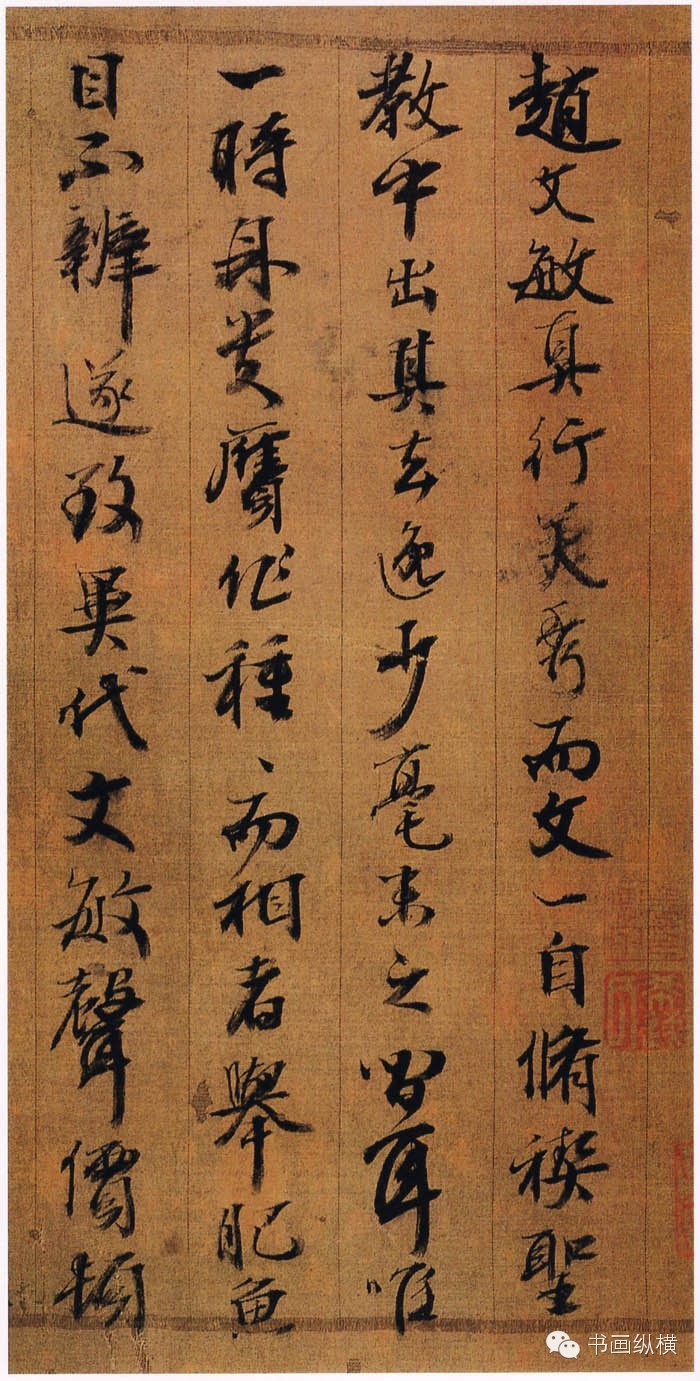 趙文敏真行美秀而文一自脩禊聖
教中出其去逸少毫末之間耳唯
一時身貴贋作種〻而相者舉肥魚
目不辨遂致異代文敏聲價頓
书画纵横